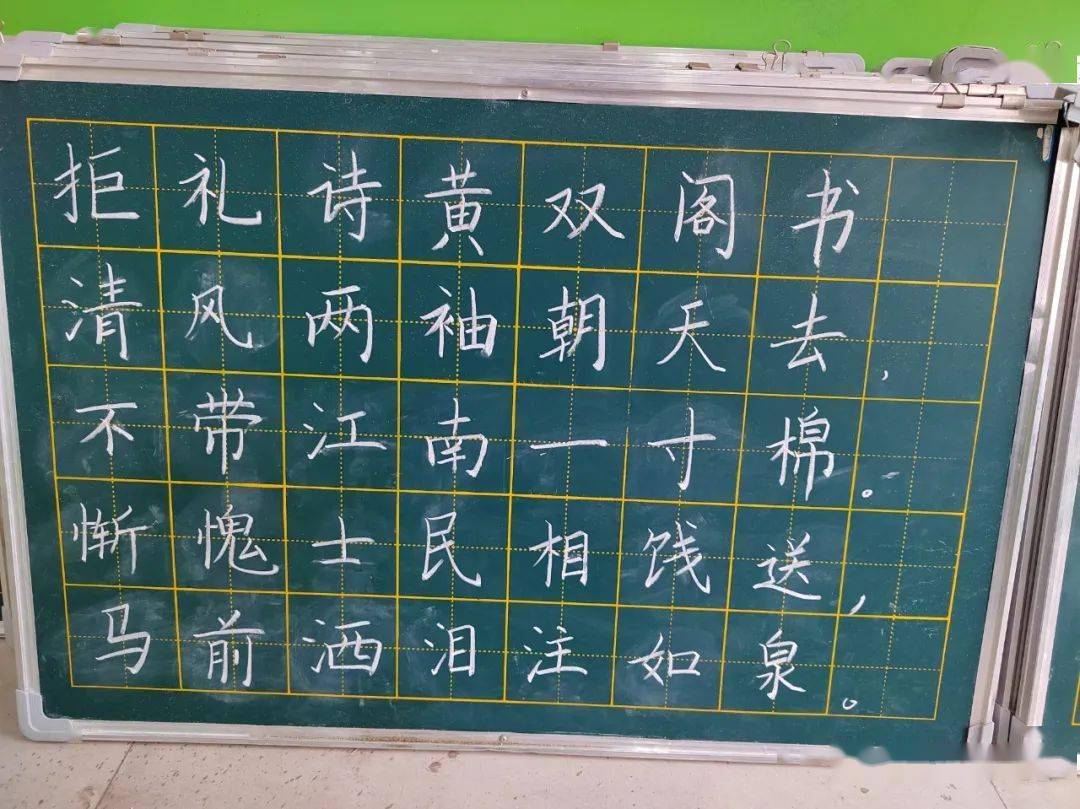 拒礼诗黄双阁书
清风两袖朝天去,
不带江南一寸棉。
惭愧士民相饯送,
马前洒泪注如泉。